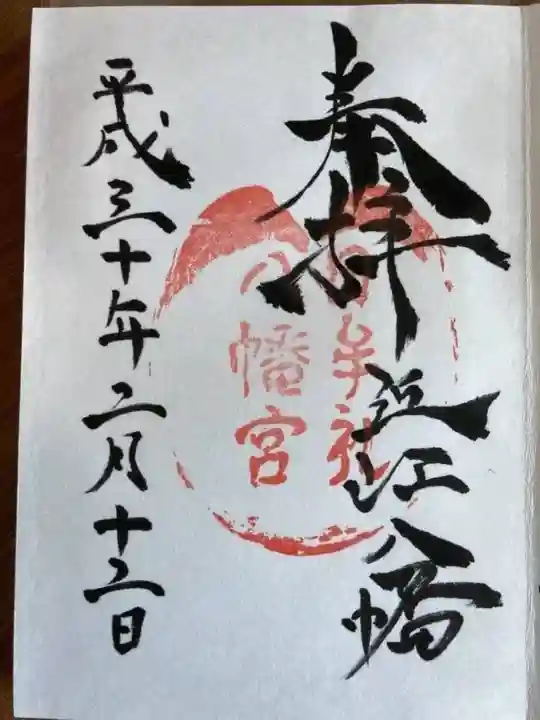 奉拝
近江八幡
日牟礼社
八幡宮
平成三十年二月十二日